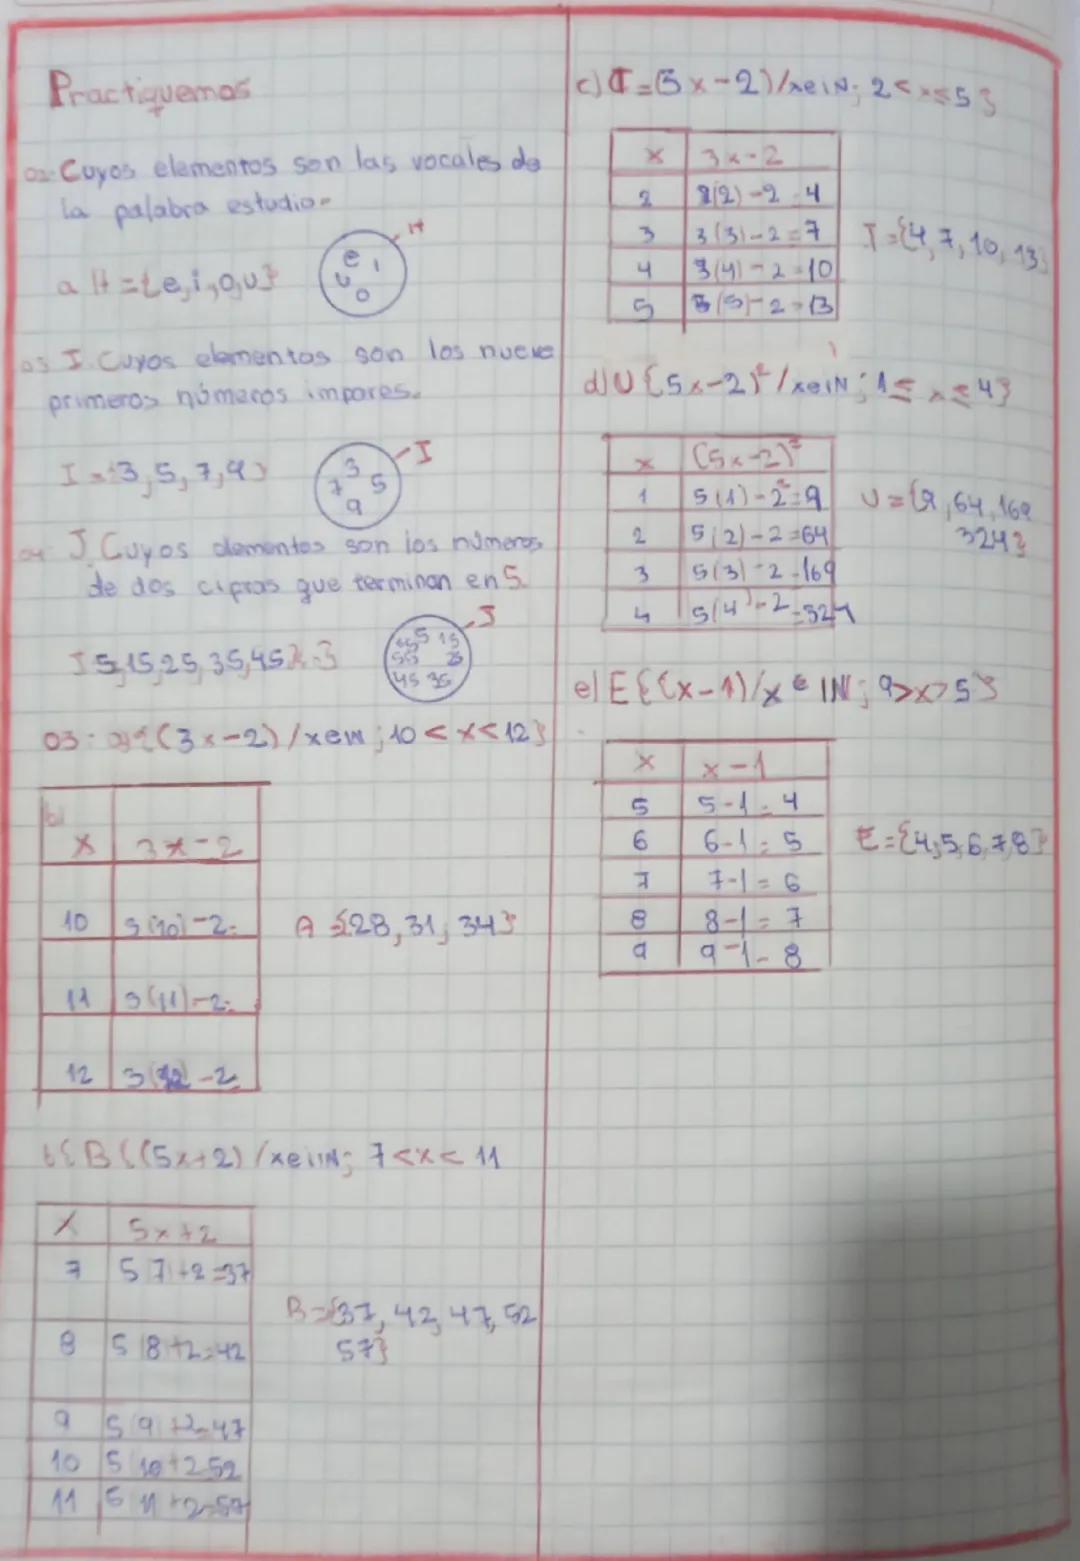 Practiquemos
02. Cuyos elementos son las vocales de
la palabra estudio.
a H = {e, i, o, u}
H
e
u i
o
03 I. Cuyos elementos son los nueve
primeros números impares.
I = {3, 5, 7, 9}
I
3
7 5
9
04 J. Cuyos elementos son los números
de dos cipras que terminan en 5.
J 5, 15, 25, 35, 45
J
5 15
55 25
45 35
03. a) {(3x-2)/x∈IN; 10 < x < 12}
b)
x 3x-2
10 3(10)-2=
11 3(11)-2=
12 3(12)-2
A {28, 31, 34}
b{ B {(5x+2)/x∈IN; 7 < x < 11
x 5x+2
7 5(7)+2=37
8 5(8+2=42
9 5(9)+2=47
10 5 10+2 52
11 5 11+2=57
B={37, 42, 47, 52
57}
c) I=(3x-2)/x∈IN; 2 < x ≤ 5}
x 3x-2
2 3(2)-2=4
3 3(3)-2=7
4 3(4)-2=10
5 3(5)-2=13
I={4, 7, 10, 13}
d) U {5x-2)²/x∈IN; 1 ≤ x ≤ 4}
x (5x-2)²
1 5(1)-2²=9
2 5(2)-2=64
3 5(3)-2=169
4 5(4)-2=324
U={9, 64, 169
324}
e) E{(x-1)/x ∈ IN; 9>x>5}
x x-1
5 5-1=4
6 6-1=5
7 7-1=6
8 8-1=7
9 9-1=8
E={4,5,6,7,8}